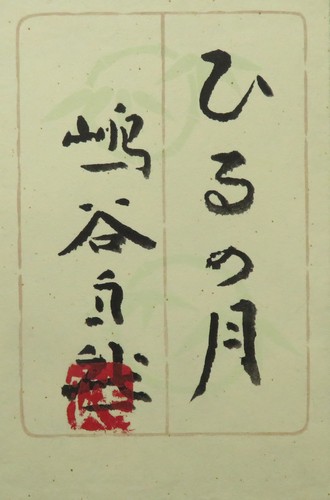 ひるの月
嶋谷自然